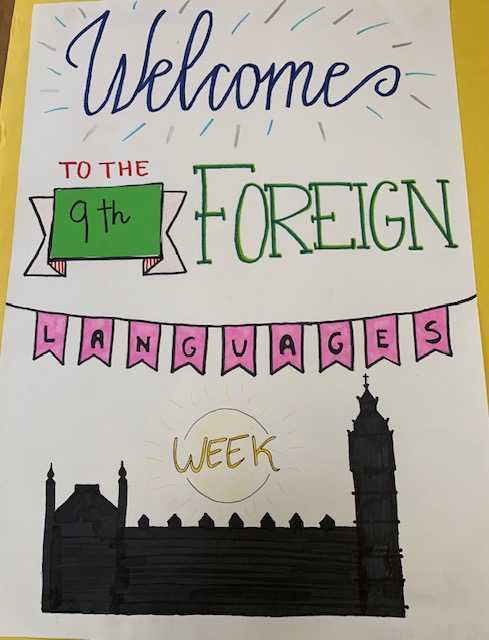 Welcome
TO THE
9th FOREIGN
LANGUAGES
WEEK